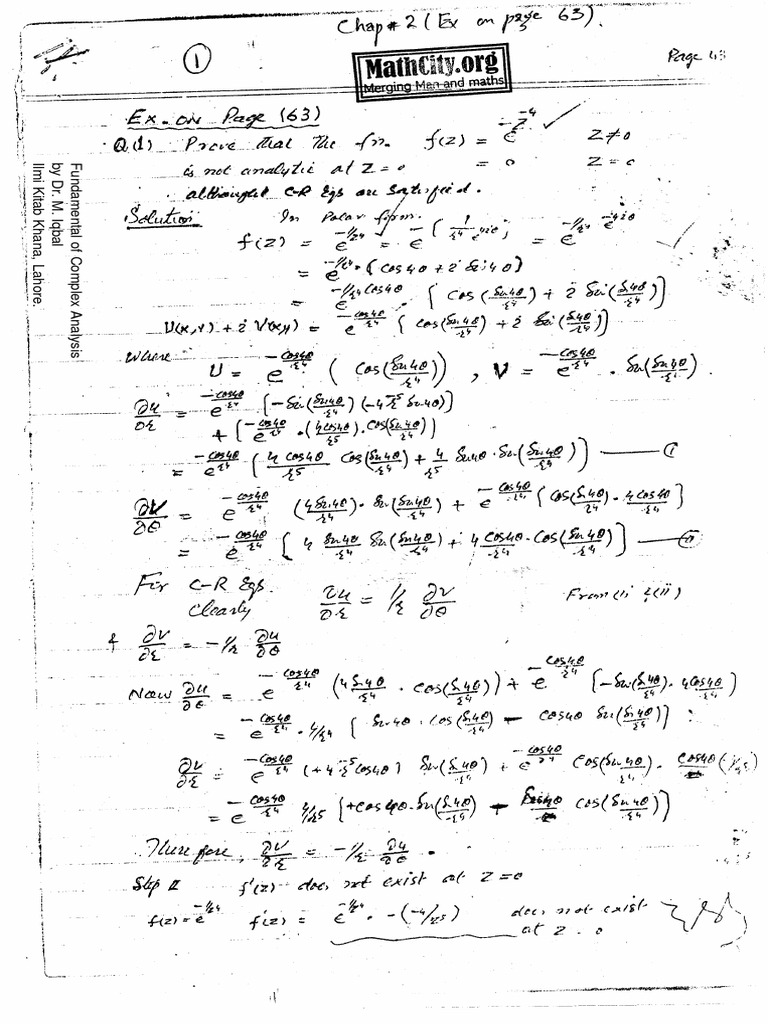 Chap # 2 (Ex on page 63).
1
MathCity.org
Merging Man and maths
Page 63
Fundamental of Complex Analysis
by Dr. M. Iqbal
Ilmi Kitab Khana, Lahore.
Ex. on Page (63)
Q(1) Prove that the fn. f(z) = e^{-z^{-4}} z ≠ 0
is not analytic at z = 0 = 0 z = 0
althought C-R Eqs are satisfied.
Solution In Polar form.
f(z) = e^{-1/z^4} = e^{-[1/r^4 e^{4iθ}]} = e^{-1/r^4 e^{-4iθ}}
= e^{-1/r^4 · (cos4θ + i sin4θ)}
= e^{-1/r^4 cos4θ} {cos(sin4θ/r^4) + i sin(sin4θ/r^4)}
U(x,y) + i V(x,y) = e^{-cos4θ/r^4} {cos(sin4θ/r^4) + i sin(sin4θ/r^4)}
where U = e^{-cos4θ/r^4} (cos(sin4θ/r^4)), V = e^{-cos4θ/r^4} . sin(sin4θ/r^4).
∂u/∂r = e^{-cos4θ/r^4} [-sin(sin4θ/r^4) (-4r^{-5} sin4θ)]
+ [e^{-cos4θ/r^4} · (4cos4θ/r^5) . cos(sin4θ/r^4)]
= e^{-cos4θ/r^4} [4cos4θ/r^5 cos(sin4θ/r^4) + 4/r^5 sin4θ · sin(sin4θ/r^4)] — (i)
∂V/∂θ = e^{-cos4θ/r^4} (4sin4θ/r^4) · sin(sin4θ/r^4) + e^{-cos4θ/r^4} {cos(sin4θ/r^4) · 4cos4θ/r^4}
= e^{-cos4θ/r^4} [4 sin4θ/r^4 sin(sin4θ/r^4) + 4cos4θ/r^4 · cos(sin4θ/r^4)] — (ii)
For C-R Eqs.
Clearly ∂u/∂r = 1/r ∂v/∂θ From (i) & (ii)
& ∂v/∂r = -1/r ∂u/∂θ
Now ∂u/∂θ = e^{-cos4θ/r^4} (4sin4θ/r^4 . cos(sin4θ/r^4)) + e^{-cos4θ/r^4} [-sin(sin4θ/r^4) . 4cos4θ/r^4]
= e^{-cos4θ/r^4} · 4/r^4 [sin4θ · cos(sin4θ/r^4) - cos4θ sin(sin4θ/r^4)]
∂v/∂r = e^{-cos4θ/r^4} (+4r^{-5} cos4θ) sin(sin4θ/r^4) + e^{-cos4θ/r^4} cos(sin4θ/r^4) .
= e^{-cos4θ/r^4} 4/r^5 [+cos4θ · sin(sin4θ/r^4) - sin4θ cos(sin4θ/r^4)]
Therefore, ∂v/∂r = -1/r ∂u/∂θ .
Step II f'(z) does not exist at z = 0
f(z) = e^{-1/z^4} f'(z) = e^{-1/z^4} · -(-4/z^5) does not exist
at z = 0